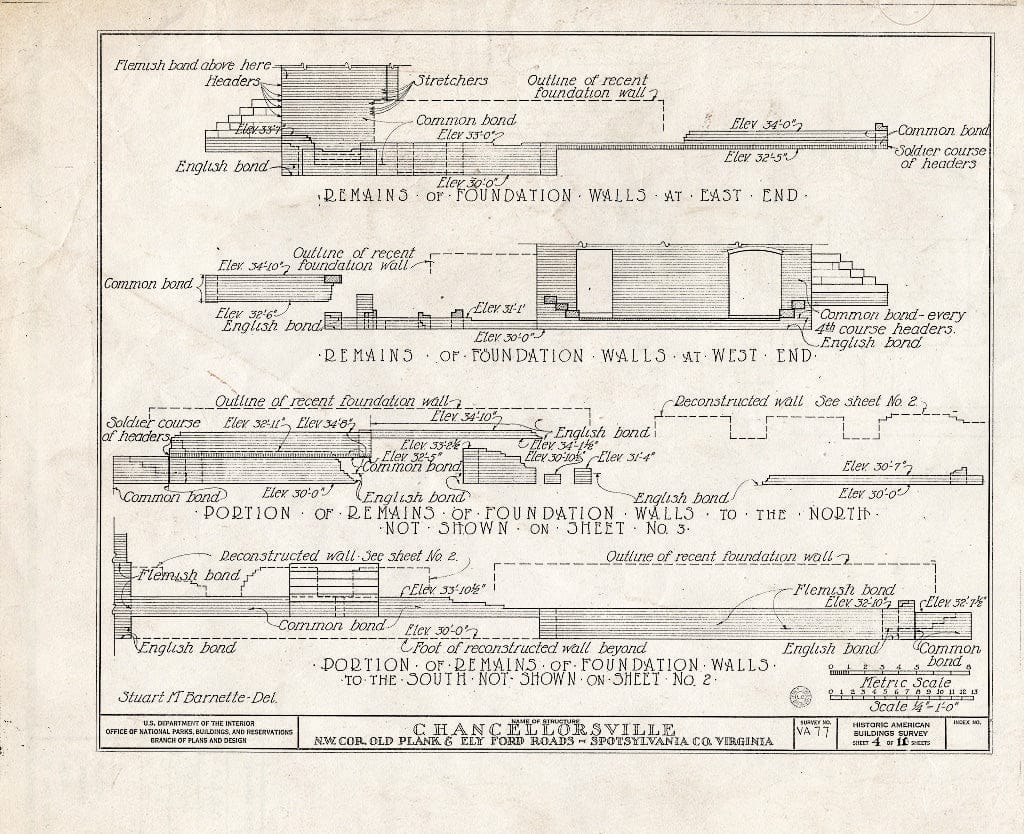 Flemish bond above here
Headers
Stretchers
Outline of recent
foundation wall
Common bond
Elev 33'-7"
Elev 33'-0"
English bond
Elev 30'-0"
Elev 34'-0"
Elev 32'-5"
Common bond
Soldier course
of headers
·REMAINS · OF · FOUNDATION · WALLS · AT · EAST · END ·
Outline of recent
foundation wall
Elev 34'-10"
Common bond
Elev 32'-6"
English bond
Elev 31'-1"
Elev 30'-0"
Common bond - every
4th course headers.
English bond
·REMAINS · OF · FOUNDATION · WALLS · AT · WEST · END·
Outline of recent foundation wall
Reconstructed wall See sheet No. 2.
Soldier course
of headers
Elev 32'-11"
Elev 34'-8"
Elev 34'-10"
English bond
Elev 33'-2½"
Elev 34'-1½"
Elev 32'-5"
Elev 30'-10½"
Elev 31'-4"
Common bond
Elev 30'-7"
Common bond
Elev 30'-0"
English bond
English bond
Elev 30'-0"
·PORTION · OF · REMAINS · OF · FOUNDATION · WALLS · TO · THE · NORTH·
·NOT · SHOWN · ON · SHEET · No. 3·
Reconstructed wall - See sheet No. 2.
Outline of recent foundation wall
Flemish bond
Elev 33'-10½"
Flemish bond
Elev 32'-10"
Elev 32'-7½"
Common bond
Elev 30'-0"
English bond
Foot of reconstructed wall beyond
English bond
Common
bond
·PORTION · OF · REMAINS · OF · FOUNDATION · WALLS·
·TO · THE · SOUTH · NOT · SHOWN · ON · SHEET · No. 2·
0 1 2 3 4 5 6 8
Metric Scale
0 1 2 3 4 5 6 7 8 9 10 11 12 13
Scale ¼"=1'-0"
Stuart M Barnette - Del.
U.S. DEPARTMENT OF THE INTERIOR
OFFICE OF NATIONAL PARKS, BUILDINGS, AND RESERVATIONS
BRANCH OF PLANS AND DESIGN
NAME OF STRUCTURE
CHANCELLORSVILLE
N.W. COR. OLD PLANK & ELY FORD ROADS - SPOTSYLVANIA CO. VIRGINIA
SURVEY NO.
VA 77
HISTORIC AMERICAN
BUILDINGS SURVEY
SHEET 4 OF 11 SHEETS
INDEX NO.